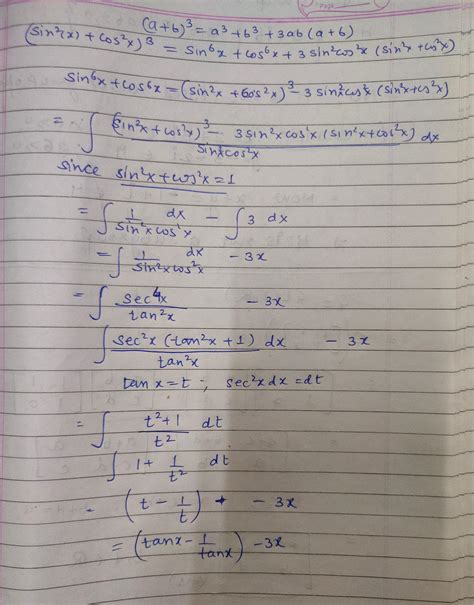 (a+b)³ = a³ + b³ + 3ab (a+b)
(sin²(x) + cos²x)³ = sin⁶x + cos⁶x + 3 sin²x cos²x (sin²x + cos²x)
sin⁶x + cos⁶x = (sin²x + cos²x)³ - 3 sin²x cos²x (sin²x + cos²x)
= ∫ (sin²x + cos²x)³ - 3 sin²x cos²x (sin²x + cos²x) / sin²x cos²x dx
since sin²x + cos²x = 1
= ∫ 1/sin²x cos²x dx - ∫ 3 dx
= ∫ 1/sin²x cos²x dx - 3x
= ∫ sec⁴x/tan²x - 3x
∫ sec²x (tan²x + 1)/tan²x dx - 3x
tan x = t ; sec²x dx = dt
= ∫ t² + 1/t² dt
∫ 1 + 1/t² dt
(t - 1/t) - 3x
= (tanx - 1/tanx) - 3x